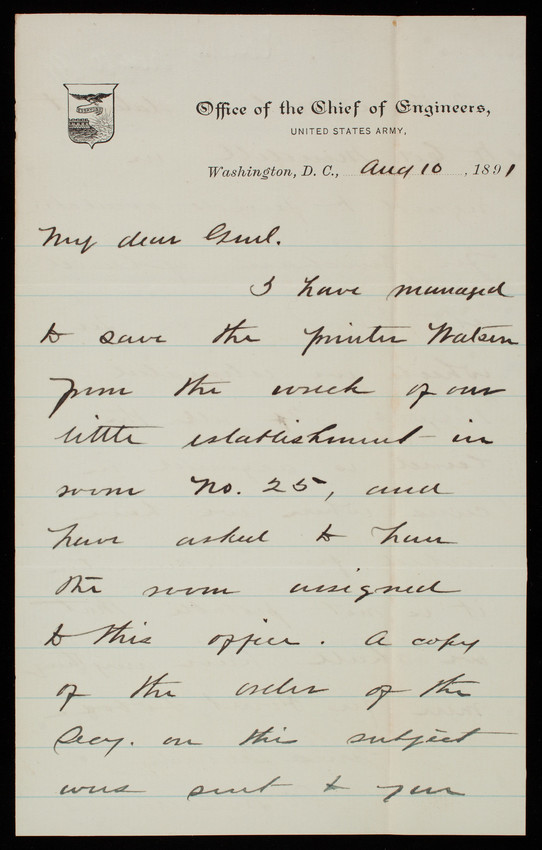 Office of the Chief of Engineers,
UNITED STATES ARMY,
Washington, D. C., Aug 10, 1891
My dear Genl.
I have managed
to save the printer Watson
from the wreck of our
little establishment in
room No. 25, and
have asked to have
the room assigned
to this office. A copy
of the order of the
Secy. on this subject
was sent to your